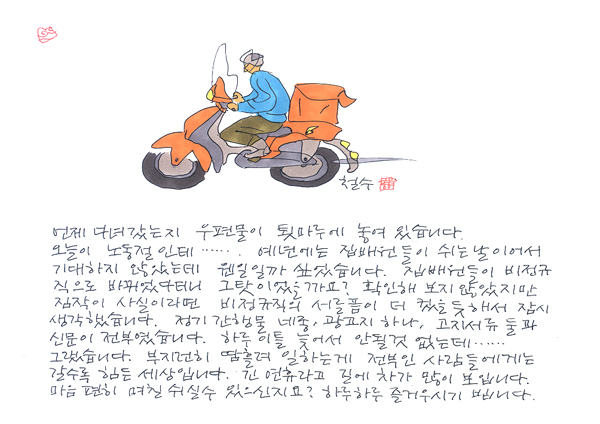 철수
언제 다녀갔는지 우편물이 툇마루에 놓여 있습니다.
오늘이 노동절인데……. 예년에는 집배원들이 쉬는날이어서
기대하지 않았는데 웬일일까 싶었습니다. 집배원들이 비정규
직으로 바뀌었다더니 그탓이었을까요? 확인해 보지 않았지만
짐작이 사실이라면 비정규직의 서글픔이 더 컸을듯해서 잠시
생각했습니다. 정기간행물 네줄, 광고지 하나, 고지서류 둘과
신문이 전부였습니다. 하루이틀 늦어서 안될것 없는데……
그랬습니다. 부지런히 땀흘려 일하는게 전부인 사람들에게는
갈수록 힘든 세상입니다. 긴 연휴라고 길에 차가 많이 보입니다.
마음 편히 며칠 쉬실수 있으신지요? 하루하루 즐거우시기 빕니다.